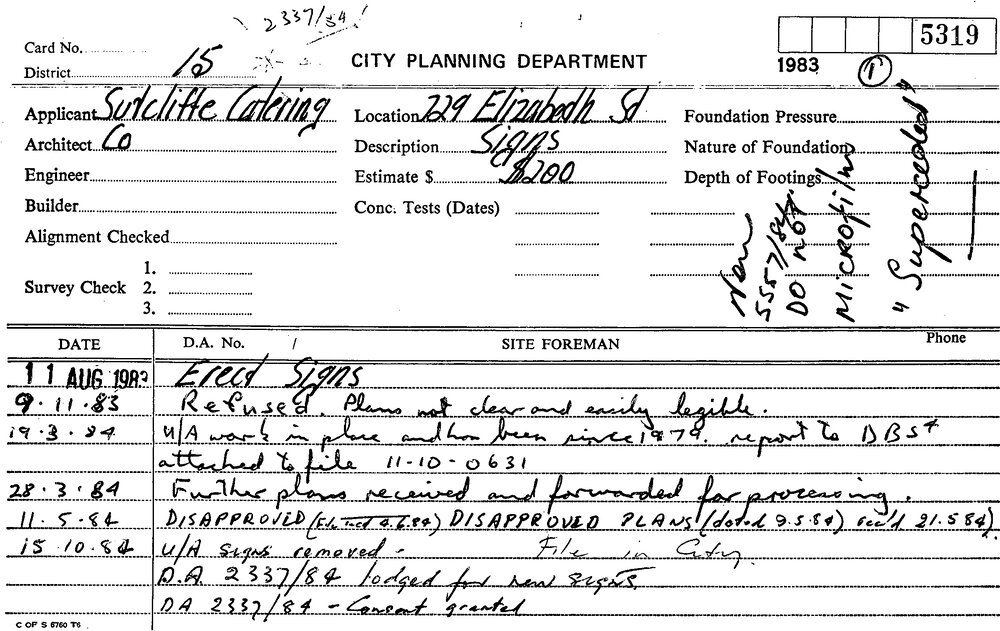 2337/84
5319
Card No.
District 15
CITY PLANNING DEPARTMENT
1983 1
Applicant Sutcliffe Catering
Location 229 Elizabedh Sd
Foundation Pressure
Architect Co
Description Signs
Nature of Foundation
Engineer
Estimate $ $200
Depth of Footings
Builder
Conc. Tests (Dates)
Alignment Checked
Survey Check
1.
2.
3.
New
5557/84
DO NOT
MICROFILM
"Superceded"
DATE D.A. No. / SITE FOREMAN Phone
11 AUG 1983 Erect Signs
9.11.83 Refused. Plans not clear and easily legible.
19.3.84 U/A work in place and has been since 1979. report to DBS &
attached to file 11-10-0631
28.3.84 Further plans received and forwarded for processing.
11.5.84 DISAPPROVED DISAPPROVED PLANS (dated 9.5.84) rec'd 21.5.84).
15.10.84 U/A signs removed - File in City.
D.A. 2337/84 lodged for new signs.
DA 2337/84 - Consent granted
C OF S 6760 T6